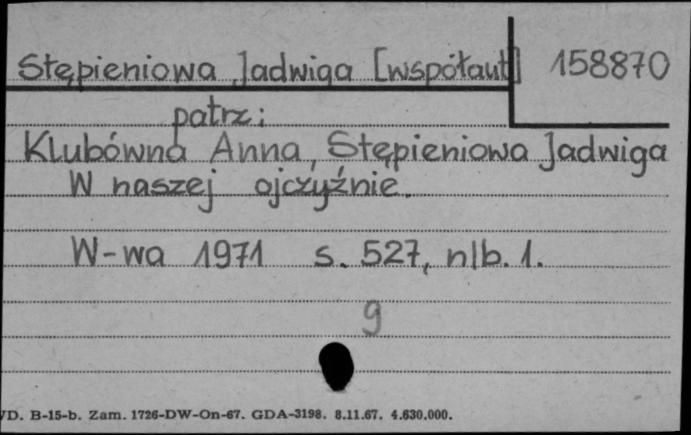 Stępieniowa Jadwiga [współaut] 158870
patrz:
Klubówna Anna, Stępieniowa Jadwiga
W naszej ojczyźnie.
W-wa 1971 s. 527, nlb. 1.
9
D. B-15-b. Zam. 1726-DW-On-67. GDA-3198. 8.11.67. 4.630.000.